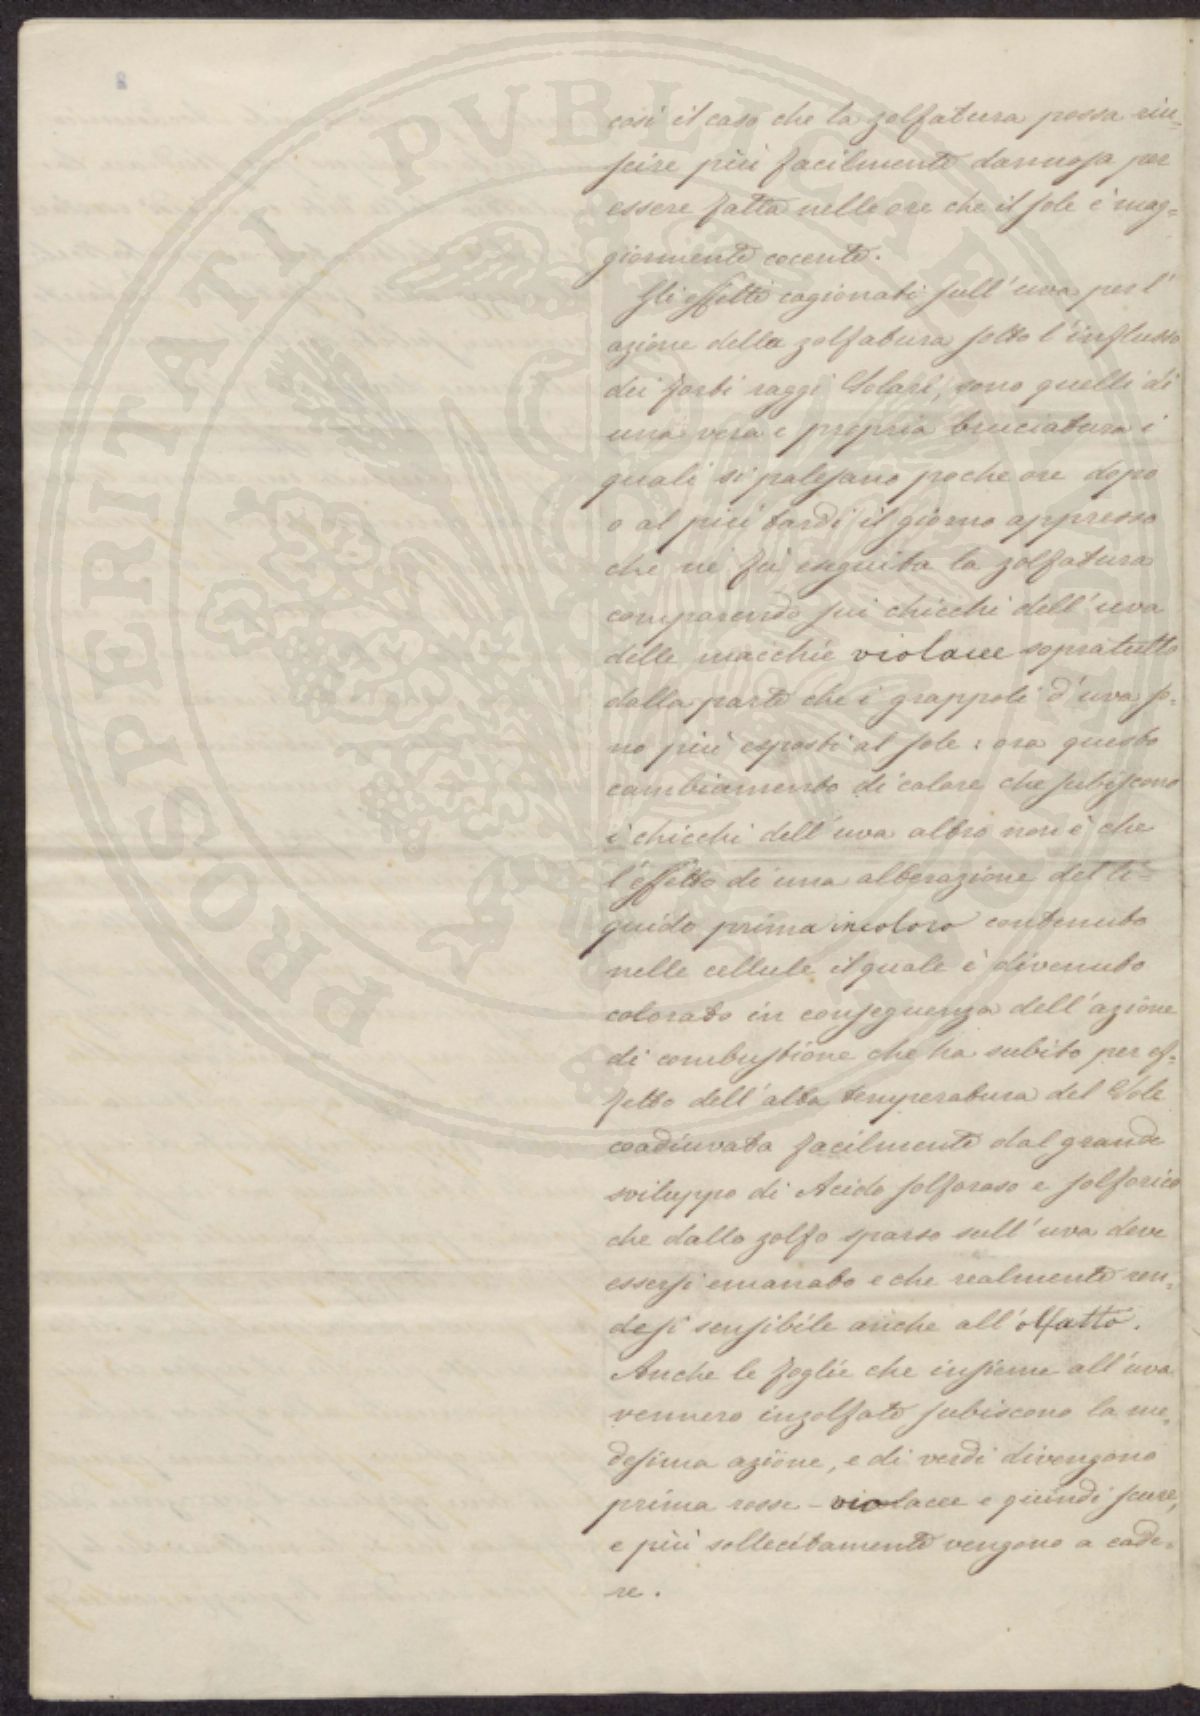 PROSPERITATI PVBLICAE AVGENDAE
così il caso che la zolfatura possa riu-
scire più facilmente dannosa per
essere fatta nelle ore che il sole è mag=
giormente cocente.
Gli effetti cagionati sull'uva per l'
azione della zolfatura sotto l'influsso
dei forti raggi Solari, sono quelli di
una vera e propria bruciatura i
quali si palesano poche ore dopo
o al più tardi il giorno appresso
che ne fu eseguita la zolfatura
comparendo sui chicchi dell'uva
delle macchie violacee sopratutto
dalla parte che i grappoli d'uva so-
no più esposti al sole: ora questo
cambiamento di colore che subiscono
i chicchi dell'uva altro non è che
l'effetto di una alterazione del li=
quido prima incoloro contenuto
nelle cellule il quale è divenuto
colorato in conseguenza dell'azione
di combustione che ha subito per ef-
fetto dell'alta temperatura del Sole
coadiuvata facilmente dal grande
sviluppo di Acido solforoso e solforico
che dallo zolfo sparso sull'uva deve
essersi emanato e che realmente ren-
desi sensibile anche all'olfatto.
Anche le foglie che insieme all'uva
vennero inzolfate subiscono la me-
desima azione, e di verdi divengono
prima rosse-violacee e quindi scure,
e più sollecitamente vengono a cade-
re.